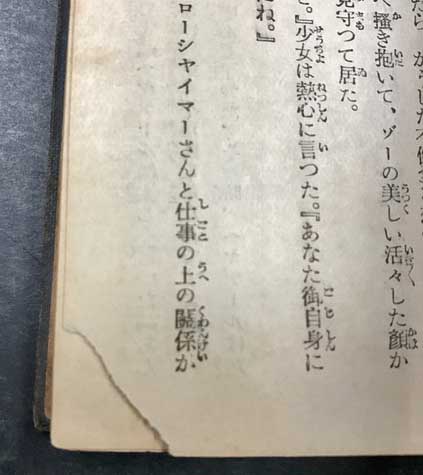 掻き抱いて、ゾーの美しい活々した顔か
見守つて居た。
と。』少女は熱心に言つた。『あなた御自身に
ね。』
ローシヤイマーさんと仕事の上の關係か